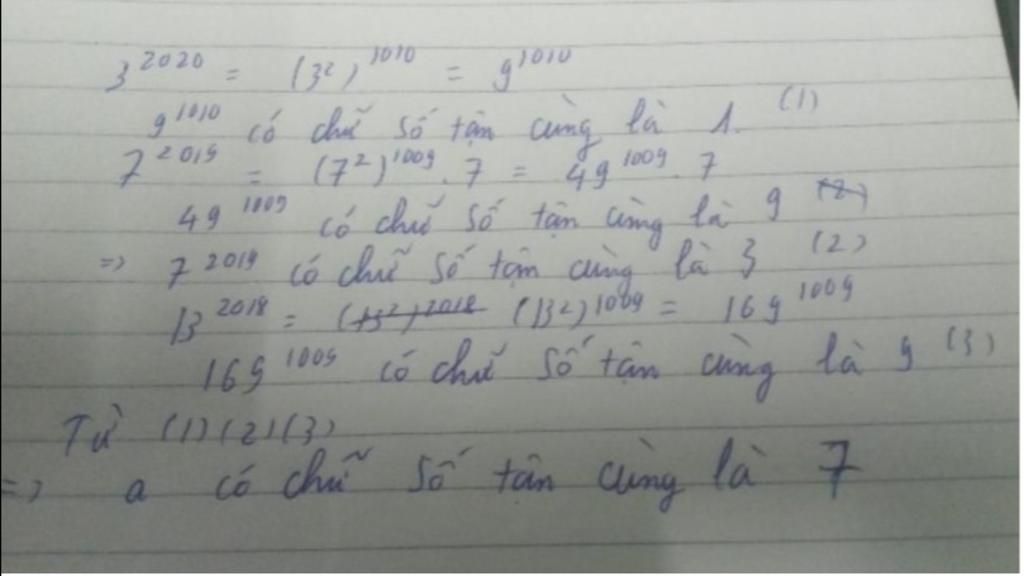 3^2020 = (3^2)^1010 = 9^1010
9^1010 có chữ số tận cùng là 1. (1)
7^2019 = (7^2)^1009 . 7 = 49^1009 . 7
49^1009 có chữ số tận cùng là 9 (2)
=> 7^2019 có chữ số tận cùng là 3 (2)
13^2018 = (13^2)^2018 (13^2)^1009 = 169^1009
169^1009 có chữ số tận cùng là 9 (3)
Từ (1)(2)(3)
=> a có chữ số tận cùng là 7